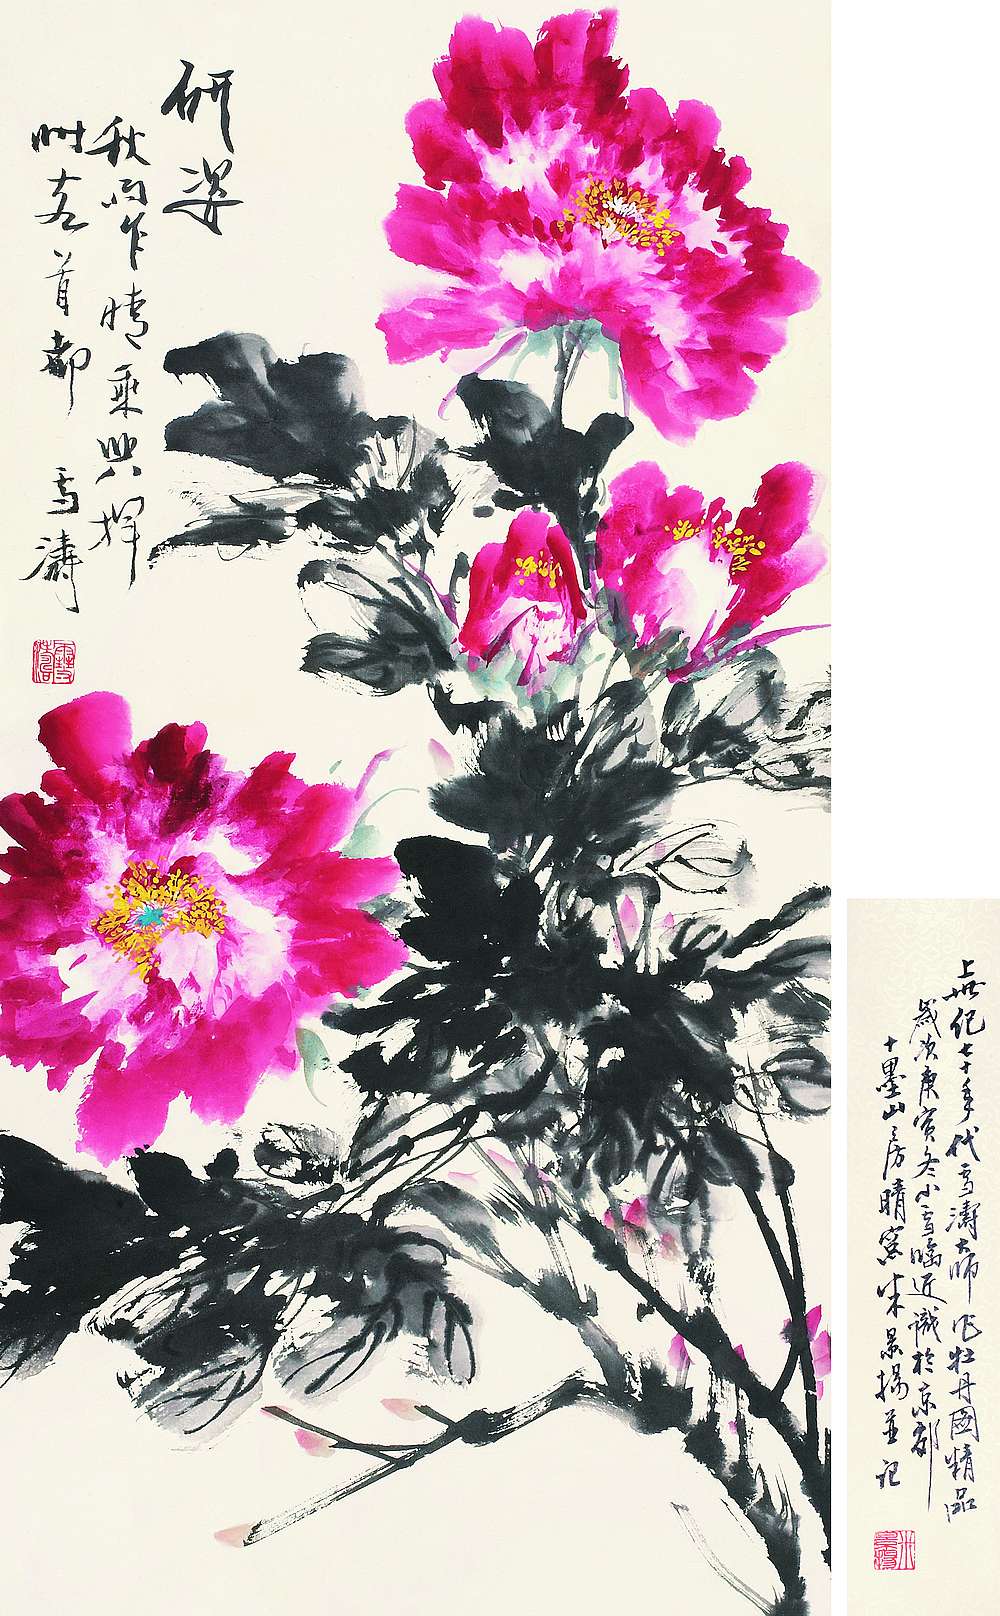 研姿
秋雨乍晴乘兴挥
时客首都 雪涛
上世纪七十年代雪涛大师作牡丹图精品
岁次庚寅冬小雪临近识于京郡
十墨山房晴窗米景扬并记